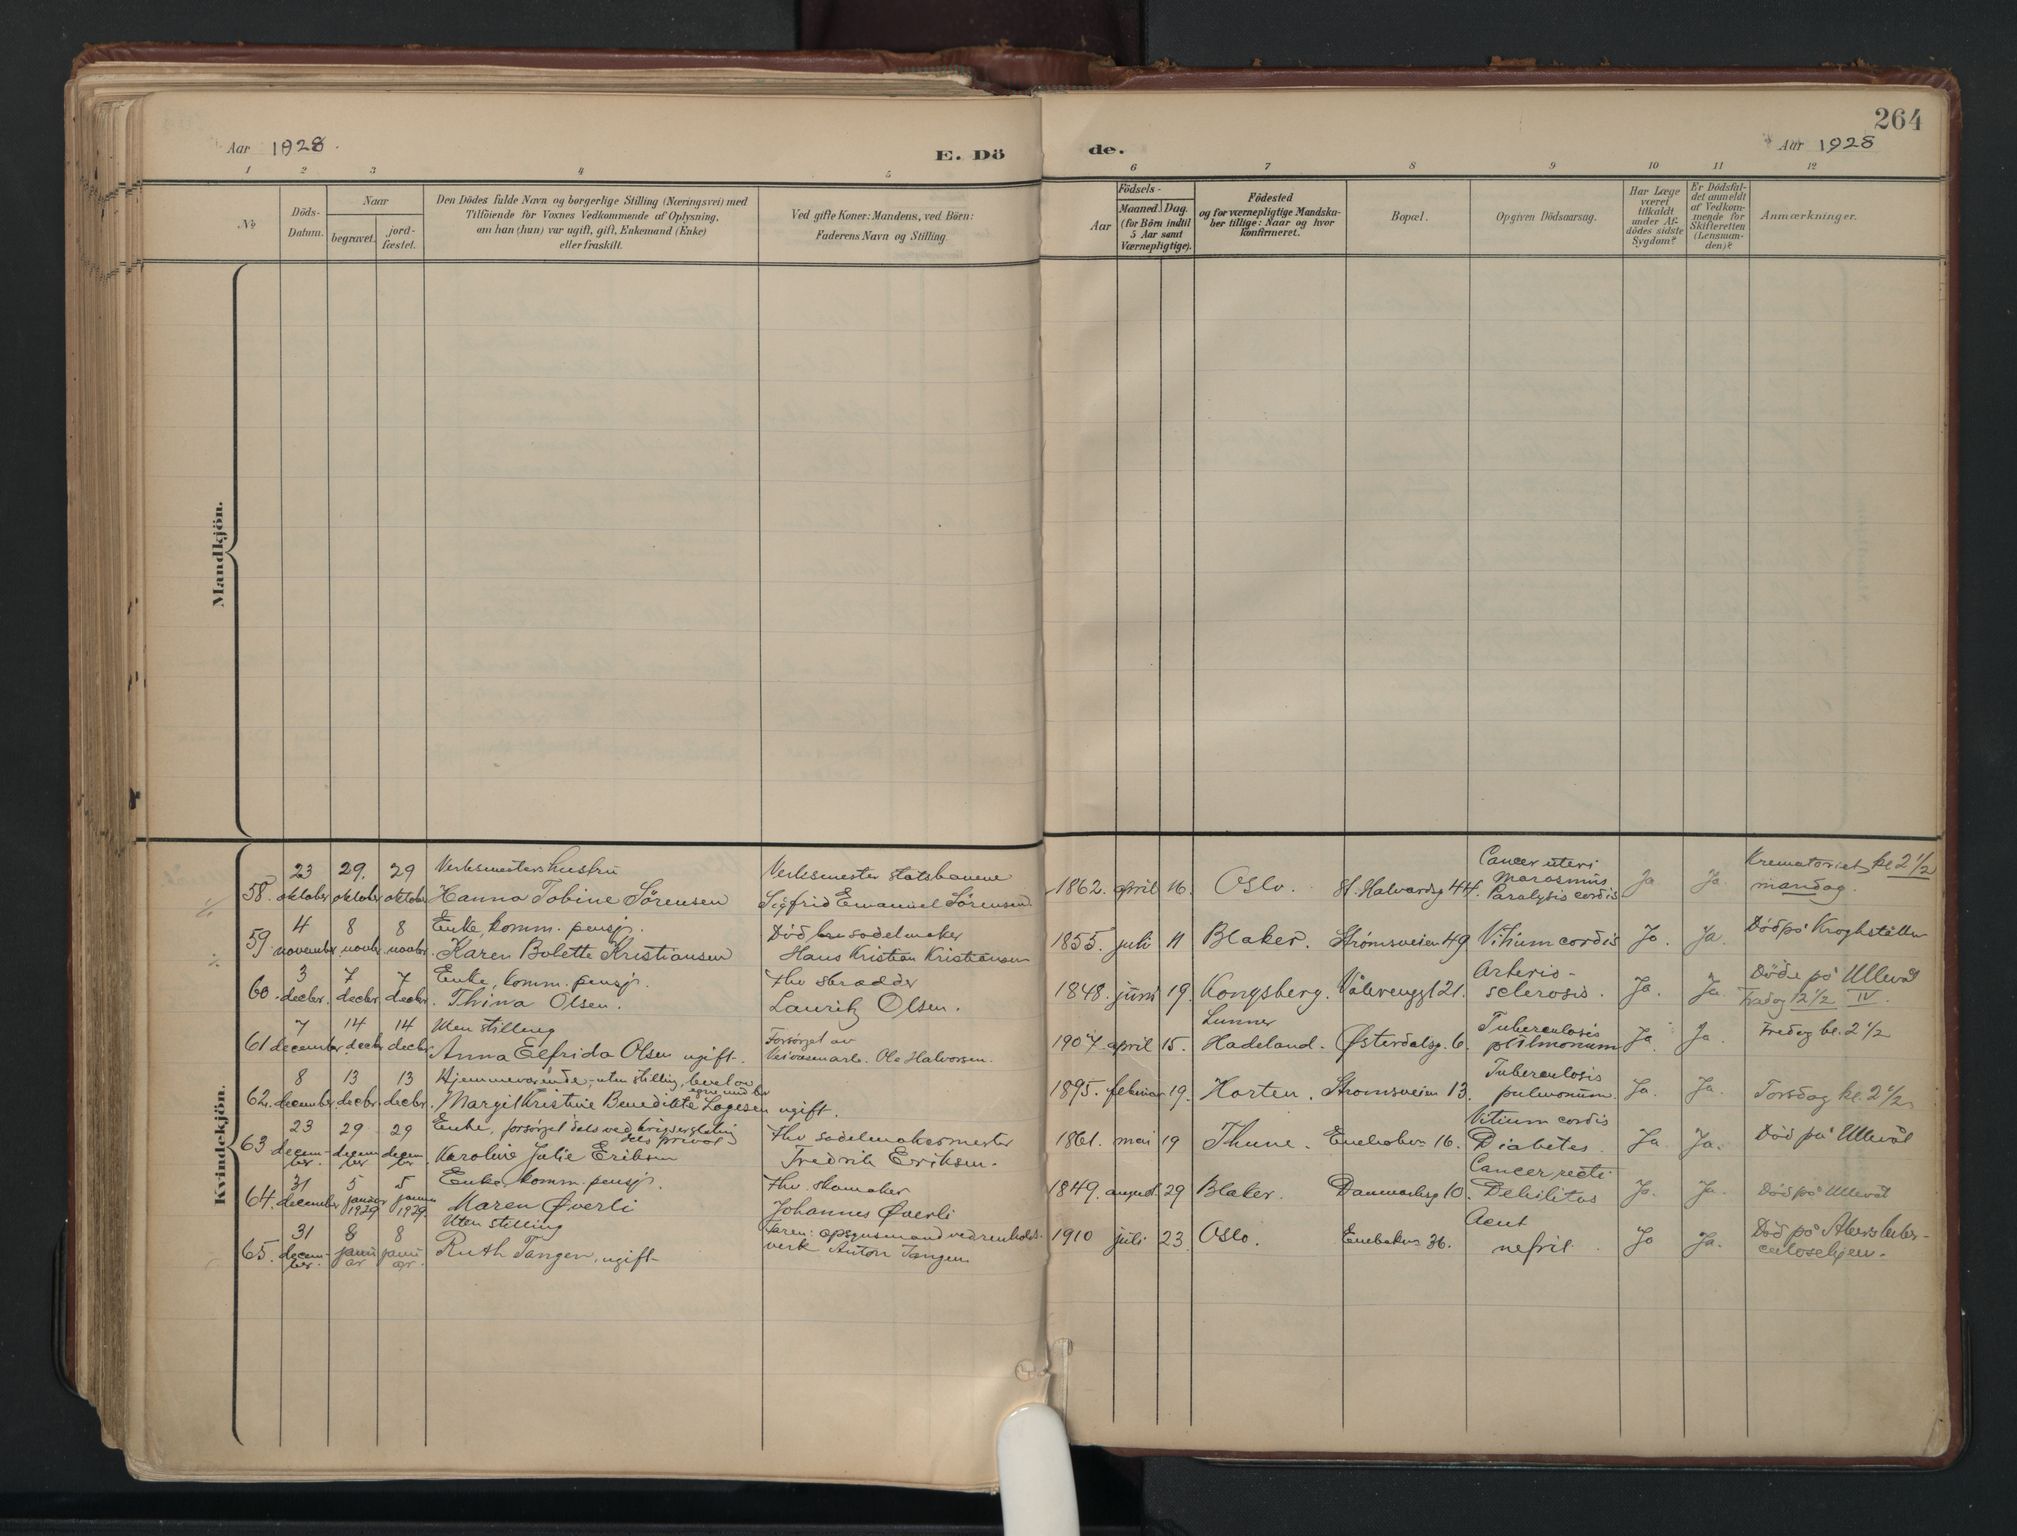 264
Aar 1928.
E. Dö
de.
Aar 1928
1 2 3 4 5 6 7 8 9 10 11 12
No
Döds-
Datum.
Naar
begravet.
jord-
fæstet.
Den Dödes fulde Navn og borgerlige Stilling (Næringsvei) med
Tilföiende for Voxnes Vedkommende af Oplysning,
om han (hun) var ugift, gift, Enkemand (Enke)
eller fraskilt.
Ved gifte Koner: Mandens, ved Börn:
Faderens Navn og Stilling.
Aar
Födsels-
Maaned. Dag.
(for Börn indtil
5 Aar samt
Værnepligtige).
Födested
og for værnepligtige Mandska-
ber tillige: Naar og hvor
konfirmeret.
Bopæl.
Opgiven Dödsaarsag.
Har Læge
været
tilkaldt
under Af-
dödes sidste
Sygdom?
Er Dödsfal-
det anmeldt
af Vedkom-
mende for
Skifteretten
(Lensman-
den)?
Anmærkninger.
Mandkjön.
Kvindekjön.
58. 23 oktober 29. oktober 29 oktober
Verksmesters hustru
Hanna Tobine Sørensen
Verksmester statsbanene
Sigfrid Emanuel Sørensen.
1862. april 16. Oslo. St. Halvardsg 44.
Cancer uteri
Marasmus
Paralysis cordis
Ja Ja
Krematoriet kl 2 1/2
mandag.
59. 4 november 8 novbr. 8 novbr.
Enke, komm. pensj.
Karen Bolette Kristiansen
Død sadelmaker
Hans Kristian Kristiansen
1855. juli 11 Blaker. Strømsveien 49 Vitium cordis Ja. Ja. Død på
60. 3 decbr. 7 decbr. 7 decbr.
Enke, komm. pensj.
Thina Olsen.
Fhv skrædder
Lauritz Olsen.
1848. juni 19. Kongsberg. Vålerenggt 21.
Arterio-
sclerosis.
Ja. Ja.
Døde på Ullevål
12 1/2 IV.
61 7 december 14 decbr 14 decbr
Uten stilling
Anna Elfrida Olsen ugift.
Forsørget av
Ole Halvorsen.
1907. april 15.
Lunner
Hadeland. Østerdalsg. 6.
Tuberculosis
pulmonum
Ja. Ja. Fredag kl. 2 1/2
62. 8 december 13 decbr. 13 decbr.
Hjemmeværende, uten stilling, levet av
egne midler
Margit Kristine Benedikte Lagesen ugift.
1895. februar 19. Horten. Strømsveien 13.
Tuberculosis
pulmonum.
Ja. Ja. Torsdag kl. 2 1/2
63 23 decem-
ber. 29 decem
ber 29 decem
ber.
Enke, forsørget dels ved
dels privat
Karoline Julie Eriksen
Fhv sadelmakermester
Fredrik Eriksen.
1861. mai 19 Thune. Enebakv. 16.
Vitium cordis
Diabetes.
Ja. Ja. Død på Ullevål
64. 31 december 5 januar
1929. 5 januar
1929.
Enke, komm. pensj.
Maren Øverli
Fhv. skomaker
Johannes Øverli
1849. august 29 Blaker. Danmarksg 10.
Cancer recti
Debilitas
Ja. Ja. Død på Ullevål
65. 31 decem-
ber. 8 janu
ar 8 janu
ar.
Uten stilling
Ruth Tangen, ugift
Faren: opsynsmand ved renholds-
verk Anton Tangen
1910 juli 23. Oslo. Enebakv. 36.
Acut
nefrit.
Ja Ja.
Død på Akers tuber-
culosehjem.